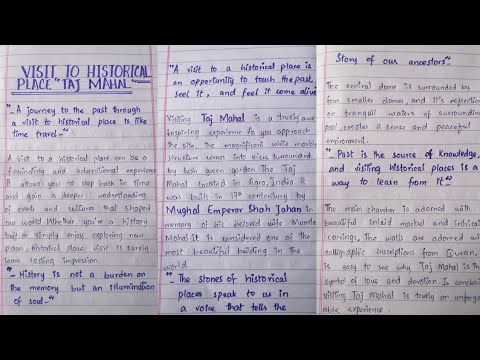 VISIT TO HISTORICAL
PLACE "TAJ MAHAL"
"~A journey to the past through
a visit to historical place is like
time travel~"
A visit to a historical place can be a
fascinating and educational experience
It allows you to step back in time
and gain a deeper understanding
of events and culture that shaped
our world. Whether you're a history
buff or simply enjoy exploring new
places, Historical place visit is surely
leave lasting impression.
"~History is not a burden on
the memory but an illumination
of soul~"
"A visit to a historical place is
an opportunity to touch the past,
see it, and feel it come alive
Visiting Taj Mahal is a truely awe
inspiring experience. As you approach
the site, the magnificent white marble
structure comes into view, surrounded
by lush green garden. The Taj
Mahal located in Agra, India. It
was built in 17th century by
Mughal Emperor Shah Jahan in
memory of his beloved wife Mumtaz
Mahal. It is considered one of the
most beautiful building in the
world.
"~The stones of historical
places speak to us in
a voice that tells the
Story of our ancestors"~
The central dome is surrounded by
four smaller domes, and it's reflection
on tranquil waters of surrounding
pool, creates a sense and peaceful
environment.
"Past is the source of Knowledge,
and visiting historical places is a
way to learn from it"~
The main chamber is adorned with
beautiful inlaid marbel and intrical
carvings. The walls are adorned with
calligraphic inscriptions from Quran,
is easy to see why Taj Mahal is the
symbol of love and devotion. In conclusion
visiting Taj Mahal is truely an unforget
able experience.